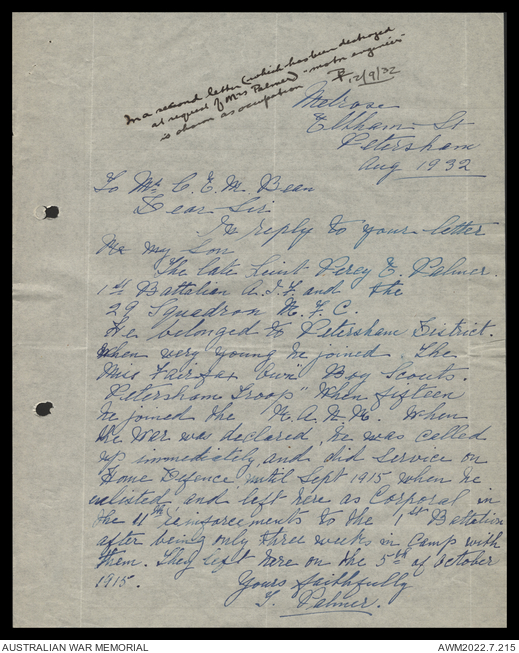 In a second letter (which has been destroyed
at request of Mrs Palmer) - motor engineer -
is shown as occupation. 12/9/32
Melrose
Eltham St
Petersham
Aug 1932
To Mr C. E. W. Bean
Dear Sir
In reply to your letter
Re my Son
The late Lieut Percy E. Palmer.
1st Battalian A.I.F. and the
29 Squadron R.F.C.
He belonged to Petersham District.
When very young he joined The
Miss Fairfax Own Boy Scouts.
Petersham Troop" When sixteen
he joined the R.A.N.R. When
the War was declared, he was called
up immediately and did service on
Home Defence until Sept 1915 when he
enlisted and left here as Corporal in
the 11th reinforcements to the 1st Battalion
after being only three weeks in Camp with
them. They left here on the 5th of October
1915.
Yours faithfully
Palmer.
AUSTRALIAN WAR MEMORIAL
AWM2022.7.215